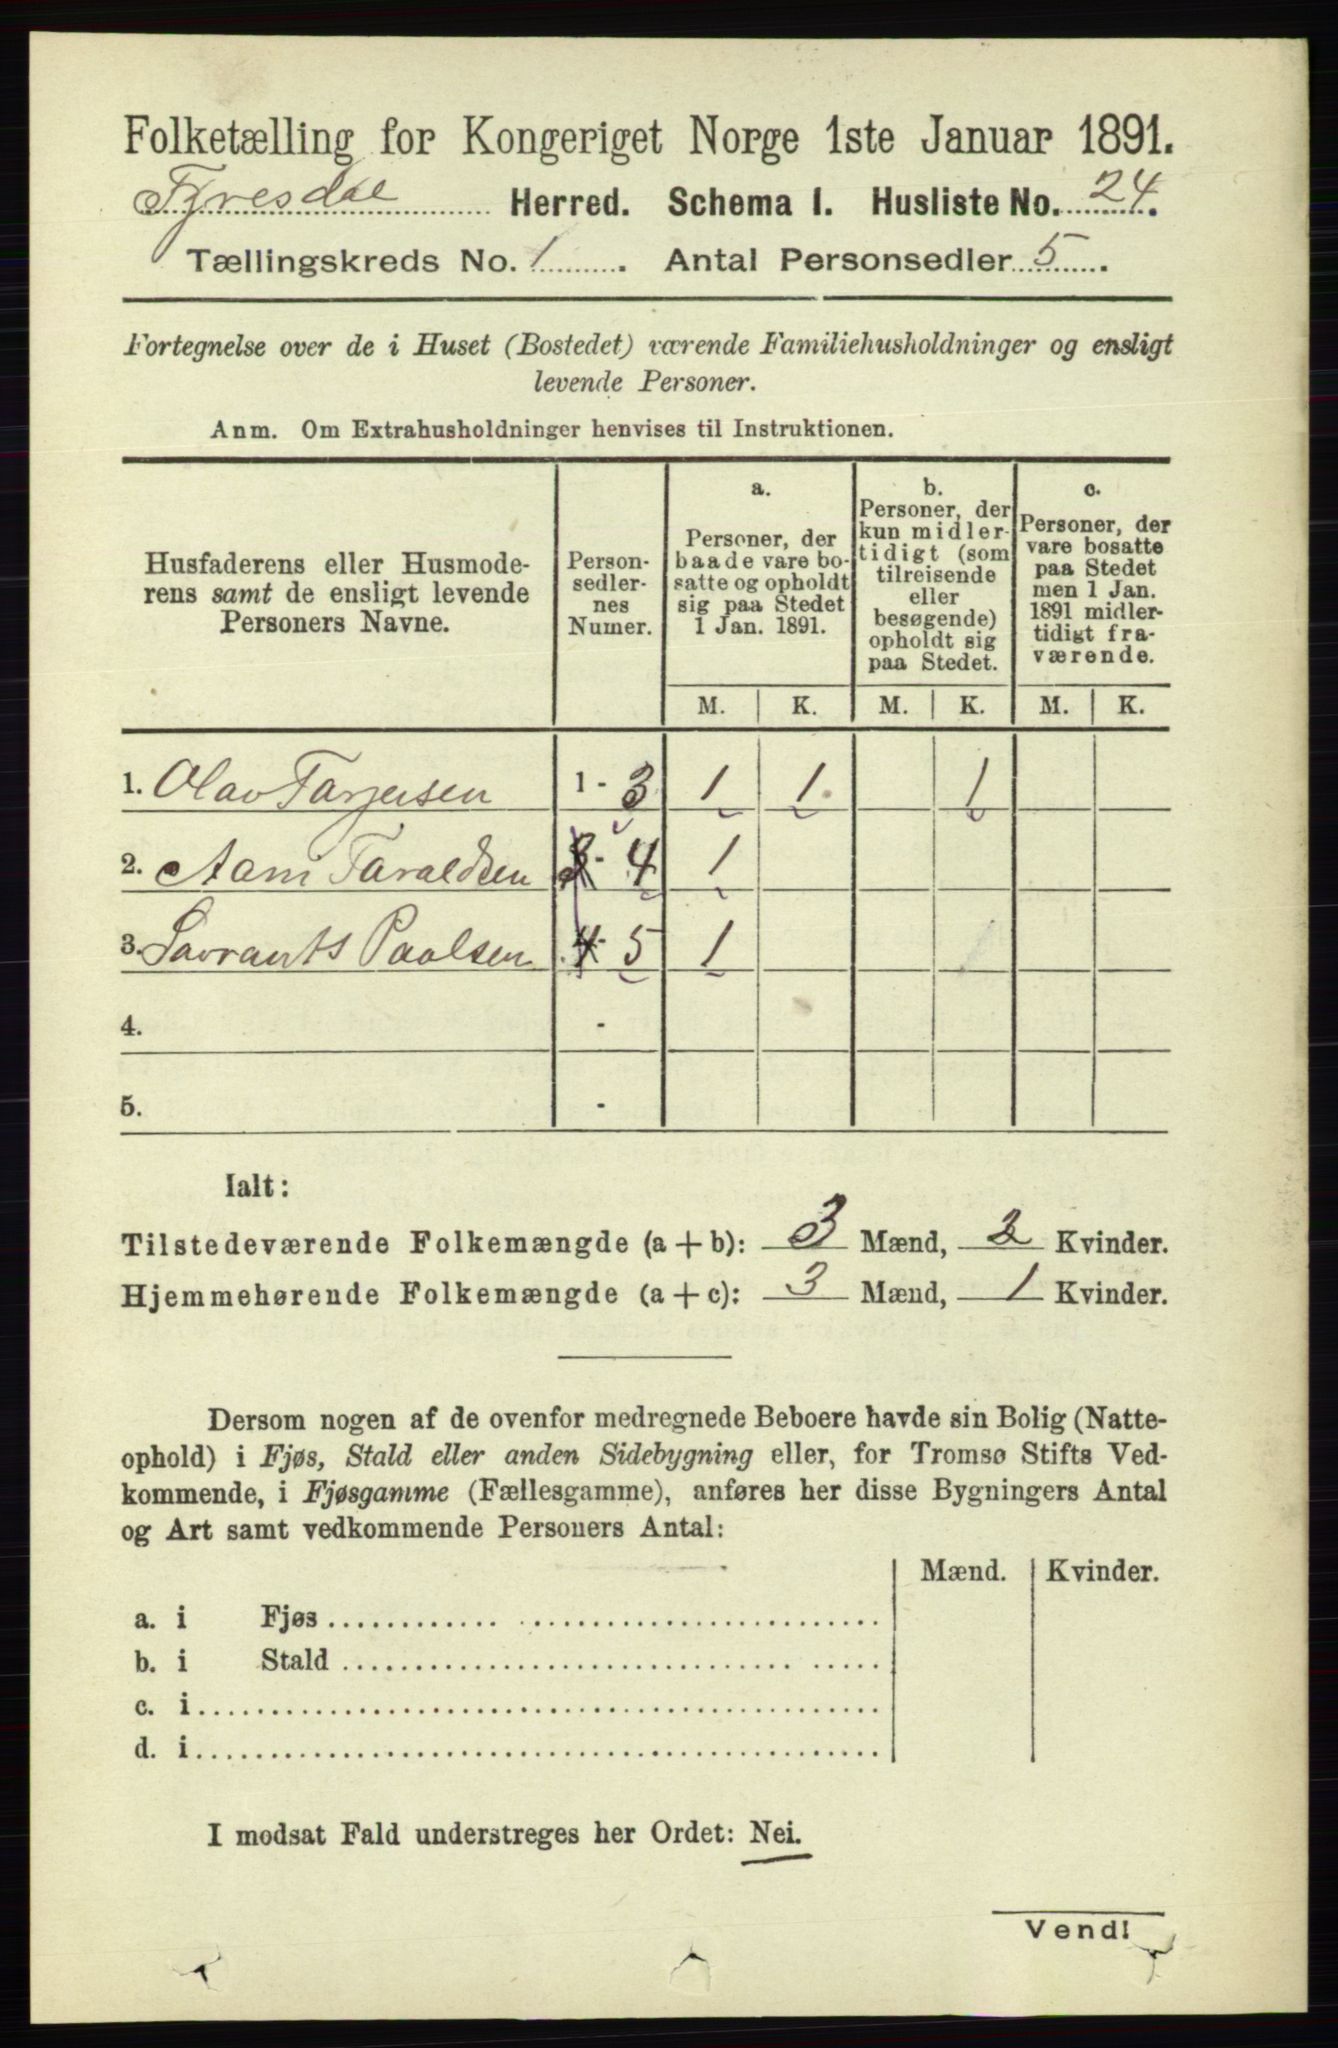 Folketælling for Kongeriget Norge 1ste Januar 1891.
Tyresdal Herred. Schema I. Husliste No. 24.
Tællingskreds No. 1. Antal Personsedler 5.
Fortegnelse over de i Huset (Bostedet) værende Familiehusholdninger og ensligt
levende Personer.
Anm. Om Extrahusholdninger henvises til Instruktionen.
Husfaderens eller Husmode-
rens samt de ensligt levende
Personers Navne.
Person-
sedler-
nes
Numer.
a.
Personer, der
baade vare bo-
satte og opholdt
sig paa Stedet
1 Jan. 1891.
b.
Personer, der
kun midler-
tidigt (som
tilreisende
eller
besøgende)
opholdt sig
paa Stedet.
c.
Personer, der
vare bosatte
paa Stedet
men 1 Jan.
1891 midler-
tidigt fra-
værende.
M. K. M. K. M. K.
1. Olav Tarjeisen 1 - 3 1 1 1
2. Aani Taraldsen 3 - 4 1
3. Paalsen 4 - 5 1
4. -
5. -
Ialt:
Tilstedeværende Folkemængde (a + b): 3 Mænd, 2 Kvinder.
Hjemmehørende Folkemængde (a + c): 3 Mænd, 1 Kvinder.
Dersom nogen af de ovenfor medregnede Beboere havde sin Bolig (Natte-
ophold) i Fjøs, Stald eller anden Sidebygning eller, for Tromsø Stifts Ved-
kommende, i Fjøsgamme (Fællesgamme), anføres her disse Bygningers Antal
og Art samt vedkommende Personers Antal:
Mænd. Kvinder.
a. i Fjøs
b. i Stald
c. i
d. i
I modsat Fald understreges her Ordet: Nei.
Vend!